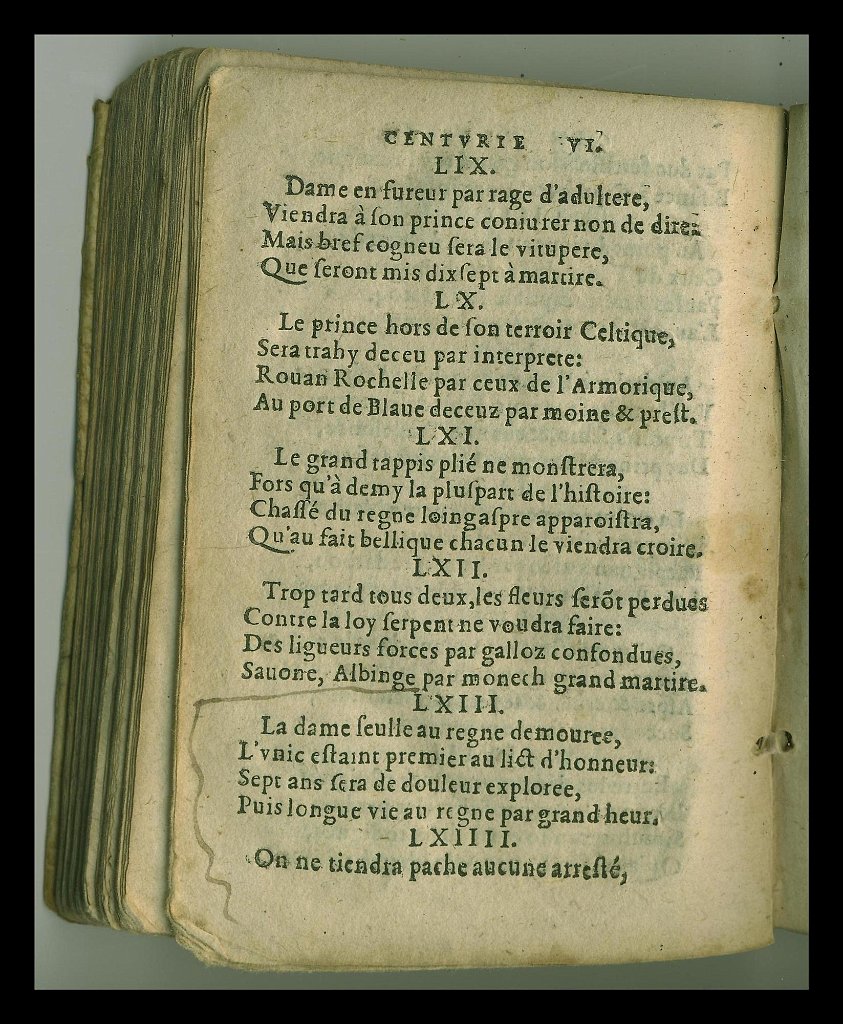 CENTVRIE VI.
LIX.
Dame en fureur par rage d'adultere,
Viendra à ſon prince coniurer non de dire:
Mais bref cogneu ſera le vitupere,
Que ſeront mis dixſept à martire.
LX.
Le prince hors de ſon terroir Celtique,
Sera trahy deceu par interprete:
Rouan Rochelle par ceux de l'Armorique,
Au port de Blaue deceuz par moine & preſt.
LXI.
Le grand tappis plié ne monſtrera,
Fors qu'à demy la pluſpart de l'hiſtoire:
Chaſſé du regne loing aſpre apparoiſtra,
Qu'au fait bellique chacun le viendra croire.
LXII.
Trop tard tous deux, les fleurs ſerõt perdues
Contre la loy ſerpent ne voudra faire:
Des ligueurs forces par galloz confondues,
Sauone, Albinge par monech grand martire.
LXIII.
La dame ſeulle au regne demouree,
L'vnic eſtaint premier au lict d'honneur:
Sept ans ſera de douleur exploree,
Puis longue vie au regne par grand heur.
LXIIII.
On ne tiendra pache aucune arreſté,